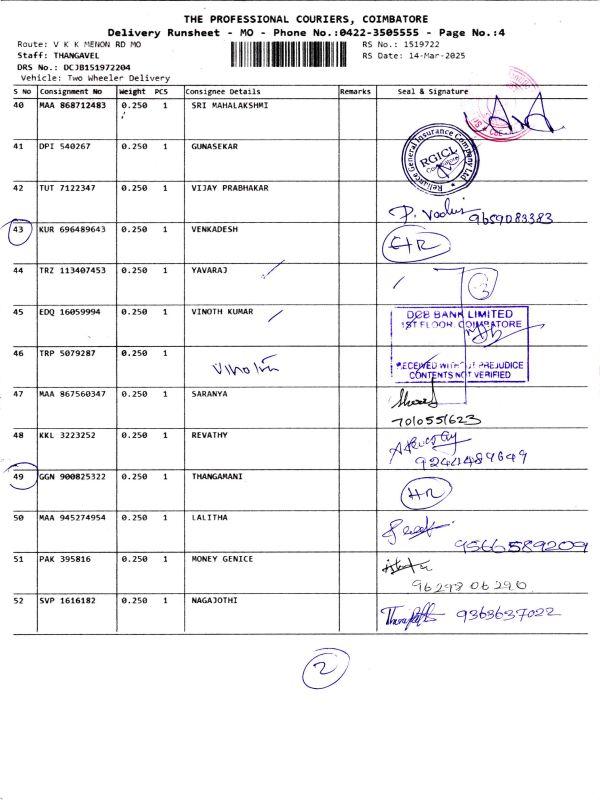 THE PROFESSIONAL COURIERS, COIMBATORE
Delivery Runsheet - MO - Phone No.:0422-3505555 - Page No.:4
Route: V K K MENON RD MO
RS No.: 1519722
Staff: THANGAVEL
RS Date: 14-Mar-2025
DRS No.: DCJB151972204
Vehicle: Two Wheeler Delivery
S No Consignment No Weight PCS Consignee Details Remarks Seal & Signature
40 MAA 868712483 0.250 1 SRI MAHALAKSHMI
41 DPI 540267 0.250 1 GUNASEKAR
Reliance General Insurance Company Ltd
RGICL
42 TUT 7122347 0.250 1 VIJAY PRABHAKAR
9659083383
43 KUR 696489643 0.250 1 VENKADESH
44 TRZ 113407453 0.250 1 YAVARAJ
3
45 EDQ 16059994 0.250 1 VINOTH KUMAR
DCB BANK LIMITED
1ST FLOOR, COIMBATORE
46 TRP 5079287 0.250 1
RECEIVED WITHOUT PREJUDICE
CONTENTS NOT VERIFIED
47 MAA 867560347 0.250 1 SARANYA
7010551623
48 KKL 3223252 0.250 1 REVATHY
9244489649
49 GGN 900825322 0.250 1 THANGAMANI
HR
50 MAA 945274954 0.250 1 LALITHA
9566589209
51 PAK 395816 0.250 1 MONEY GENICE
9629806290
52 SVP 1616182 0.250 1 NAGAJOTHI
9363637022
2